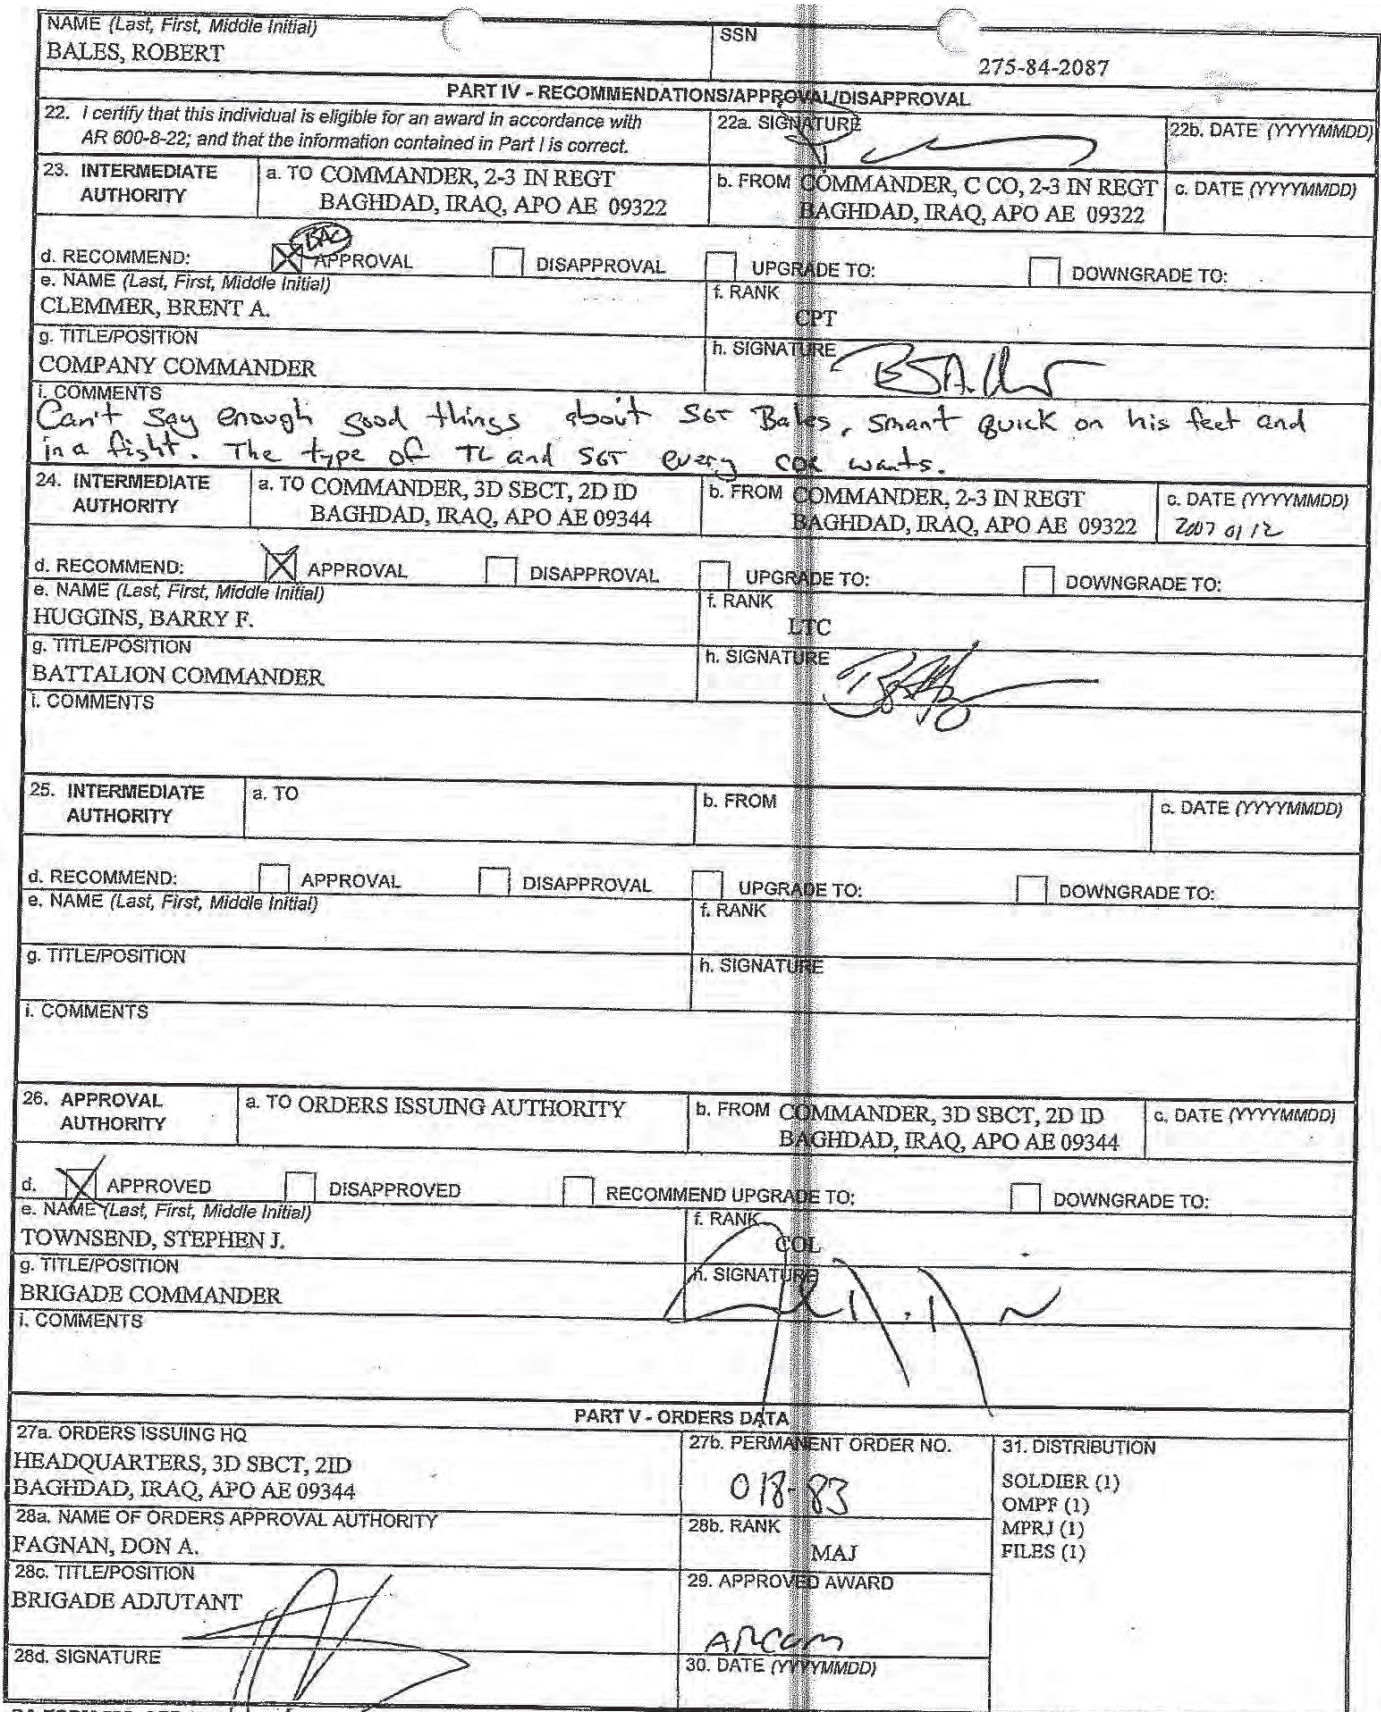 NAME (Last, First, Middle Initial)
BALES, ROBERT
SSN
275-84-2087
PART IV - RECOMMENDATIONS/APPROVAL/DISAPPROVAL
22. I certify that this individual is eligible for an award in accordance with
AR 600-8-22; and that the information contained in Part I is correct.
22a. SIGNATURE
22b. DATE (YYYYMMDD)
23. INTERMEDIATE
AUTHORITY
a. TO COMMANDER, 2-3 IN REGT
BAGHDAD, IRAQ, APO AE 09322
b. FROM COMMANDER, C CO, 2-3 IN REGT
BAGHDAD, IRAQ, APO AE 09322
c. DATE (YYYYMMDD)
d. RECOMMEND: BAC APPROVAL DISAPPROVAL UPGRADE TO: DOWNGRADE TO:
e. NAME (Last, First, Middle Initial)
CLEMMER, BRENT A.
f. RANK
CPT
g. TITLE/POSITION
COMPANY COMMANDER
h. SIGNATURE
i. COMMENTS
Can't say enough good things about SGT Bales, smart quick on his feet and
in a fight. The type of TL and SGT every CDR wants.
24. INTERMEDIATE
AUTHORITY
a. TO COMMANDER, 3D SBCT, 2D ID
BAGHDAD, IRAQ, APO AE 09344
b. FROM COMMANDER, 2-3 IN REGT
BAGHDAD, IRAQ, APO AE 09322
c. DATE (YYYYMMDD)
2007 01 12
d. RECOMMEND: APPROVAL DISAPPROVAL UPGRADE TO: DOWNGRADE TO:
e. NAME (Last, First, Middle Initial)
HUGGINS, BARRY F.
f. RANK
LTC
g. TITLE/POSITION
BATTALION COMMANDER
h. SIGNATURE
i. COMMENTS
25. INTERMEDIATE
AUTHORITY
a. TO
b. FROM
c. DATE (YYYYMMDD)
d. RECOMMEND: APPROVAL DISAPPROVAL UPGRADE TO: DOWNGRADE TO:
e. NAME (Last, First, Middle Initial)
f. RANK
g. TITLE/POSITION
h. SIGNATURE
i. COMMENTS
26. APPROVAL
AUTHORITY
a. TO ORDERS ISSUING AUTHORITY
b. FROM COMMANDER, 3D SBCT, 2D ID
BAGHDAD, IRAQ, APO AE 09344
c. DATE (YYYYMMDD)
d. APPROVED DISAPPROVED RECOMMEND UPGRADE TO: DOWNGRADE TO:
e. NAME (Last, First, Middle Initial)
TOWNSEND, STEPHEN J.
f. RANK
COL
g. TITLE/POSITION
BRIGADE COMMANDER
h. SIGNATURE
i. COMMENTS
PART V - ORDERS DATA
27a. ORDERS ISSUING HQ
HEADQUARTERS, 3D SBCT, 2ID
BAGHDAD, IRAQ, APO AE 09344
27b. PERMANENT ORDER NO.
018-83
31. DISTRIBUTION
SOLDIER (1)
OMPF (1)
MPRJ (1)
FILES (1)
28a. NAME OF ORDERS APPROVAL AUTHORITY
FAGNAN, DON A.
28b. RANK
MAJ
28c. TITLE/POSITION
BRIGADE ADJUTANT
29. APPROVED AWARD
ARCOM
28d. SIGNATURE
30. DATE (YYYYMMDD)